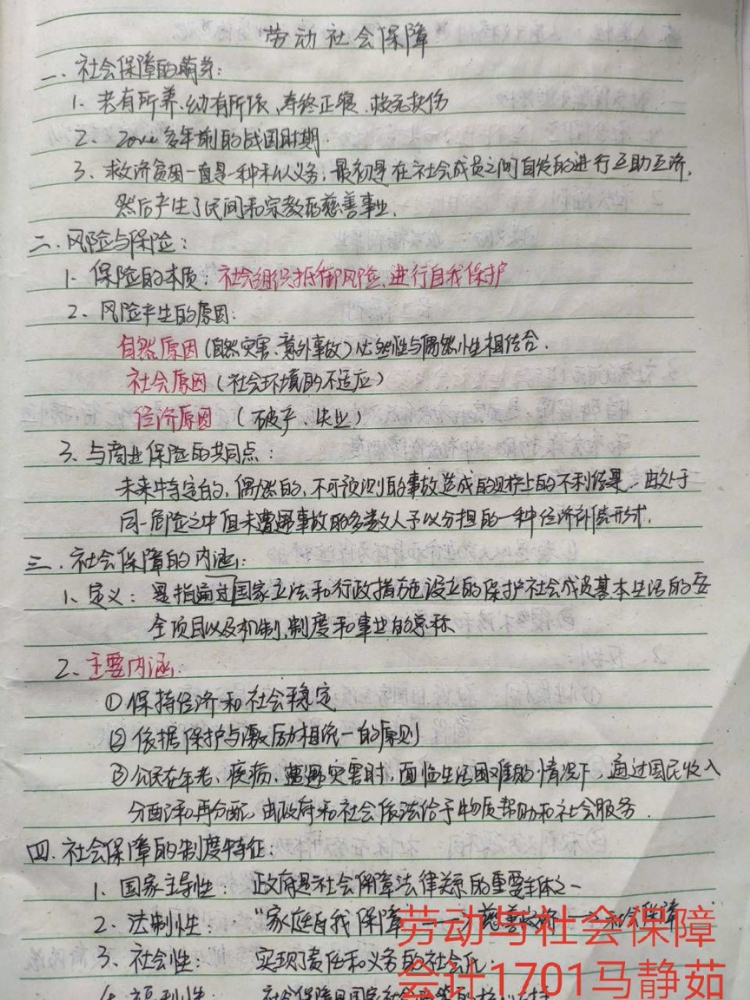 劳动社会保障
一.社会保障的萌芽:
1、老有所养、幼有所依、寿终正寝、救死扶伤
2、2000多年前的战国时期.
3、救济贫困一直是一种私人义务,最初是在社会成员之间自发的进行互助互济,
然后产生了民间和宗教的慈善事业.
二.风险与保险:
1.保险的本质:社会组织抵御风险,进行自我保护
2、风险产生的原因:
自然原因(自然灾害、意外事故)必然性与偶然性相结合.
社会原因(社会环境的不适应)
经济原因 (破产、失业)
3.与商业保险的共同点:
未来特定的,偶然的,不可预测的事故造成的财产上的不利结果,由处于
同一危险之中但未遭遇事故的多数人予以分担的一种经济补偿形式.
三.社会保障的内涵:
1、定义:是指通过国家立法和行政措施设立的保护社会成员基本生活的安
全项目以及机制,制度和事业的总称
2、主要内涵:
①保持经济和社会稳定
②依据保护与激励相统一的原则
③公民在年老、疾病、遭遇灾害时,面临生活困难的情况下,通过国民收入
分配和再分配,由政府和社会依法给予物质帮助和社会服务.
四.社会保障的制度特征:
1、国家主导性:政府是社会保障法律关系的重要主体之一
2、法制性:“家庭自我保障”——慈善
3、社会性:实现了责任和义务的社会化;
4.福利性:
劳动与社会保障
会计1701马静茹